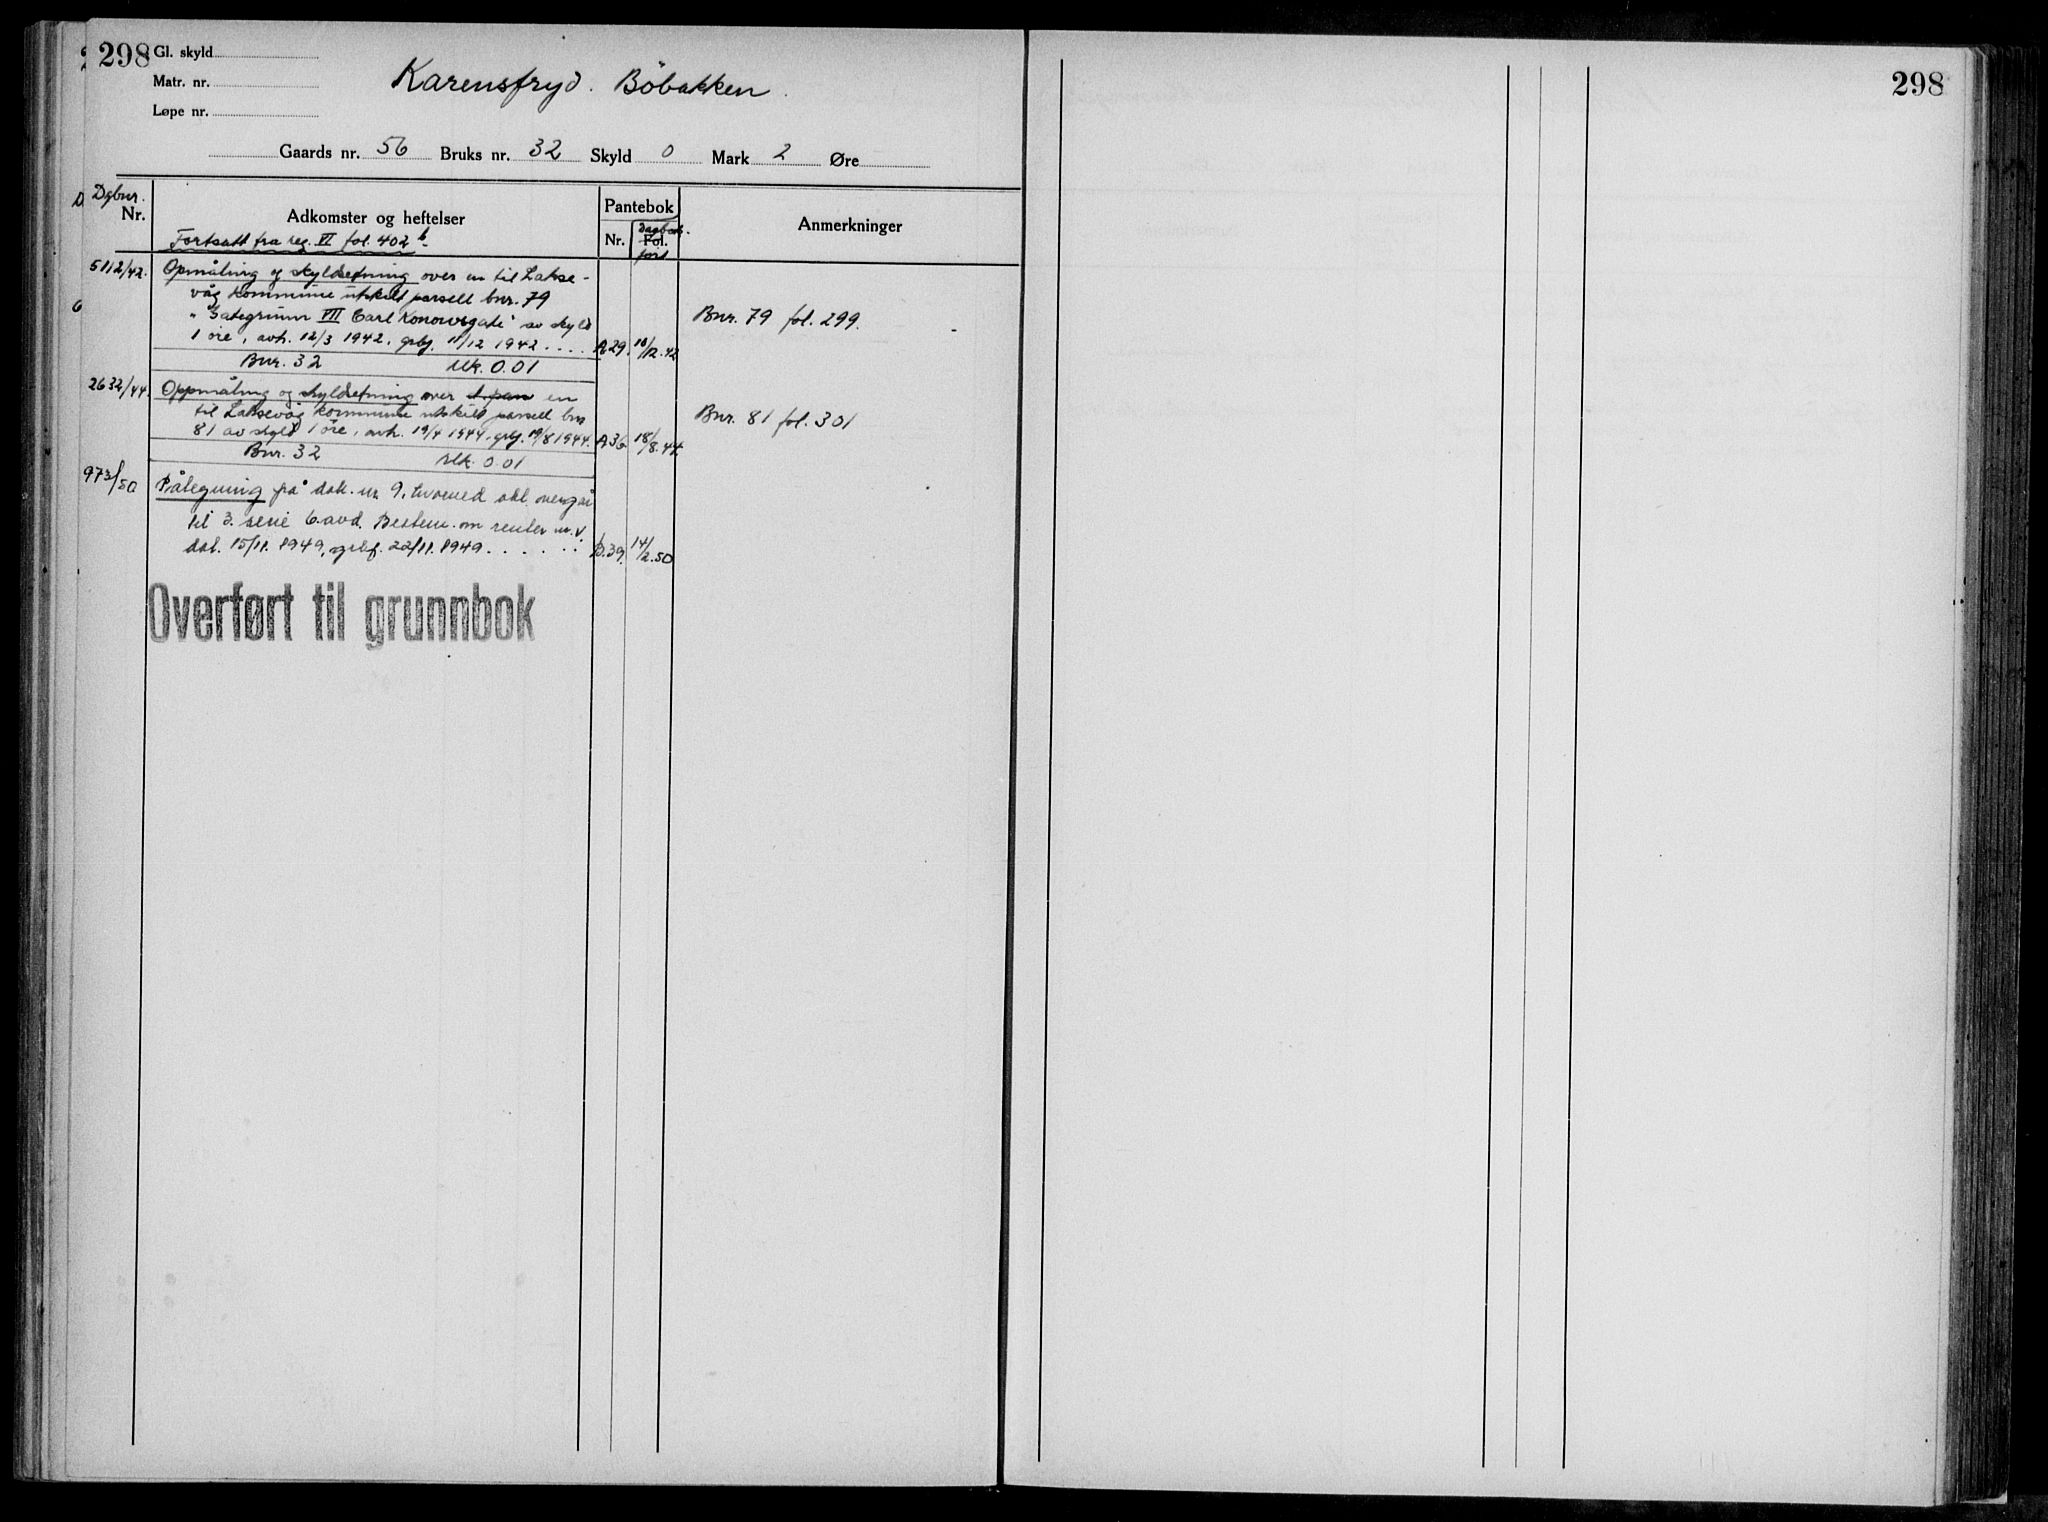 298
Gl. skyld
Matr. nr.
Løpe nr.
Karensfryd. Böbakken.
298
Gaards nr. 56 Bruks nr. 32 Skyld 0 Mark 2 Øre
Dgbnr.
Nr.
Adkomster og heftelser
Fortsatt fra reg. VI fol. 402 b.
Pantebok
Nr.
Dagbok.
Fol.
ført
Anmerkninger
5112/42. Opmåling og skyldsetning over en til Lakse-
våg kommune utskilt parsell bnr. 79
"Gategrunn VII Carl Konowsgate" av skyld
1 øre, avh. 12/3 1942, grbj. 11/12 1942 . . . . A 29. 10/12.42
Bnr. 79 fol. 299.
Bnr. 32 Mk. 0.01
2632/44. Oppmåling og skyldsetning over en
til Laksevåg kommune utskilt parsell bnr
81 av skyld 1 øre, avh. 19/4 1944, grbj. 19/8 1944. A 36 18/8.44
Bnr. 81 fol. 301
Bnr. 32 Mk. 0.01
973/50 Påtegning på dok. nr 9, hvorved obl. overgår
til 3. serie 6. avd. Bestem. om renter m.v.
dat. 15/11. 1949, grbf. 22/11. 1949 . . . . . . B.39. 14/2.50
Overført til grunnbok